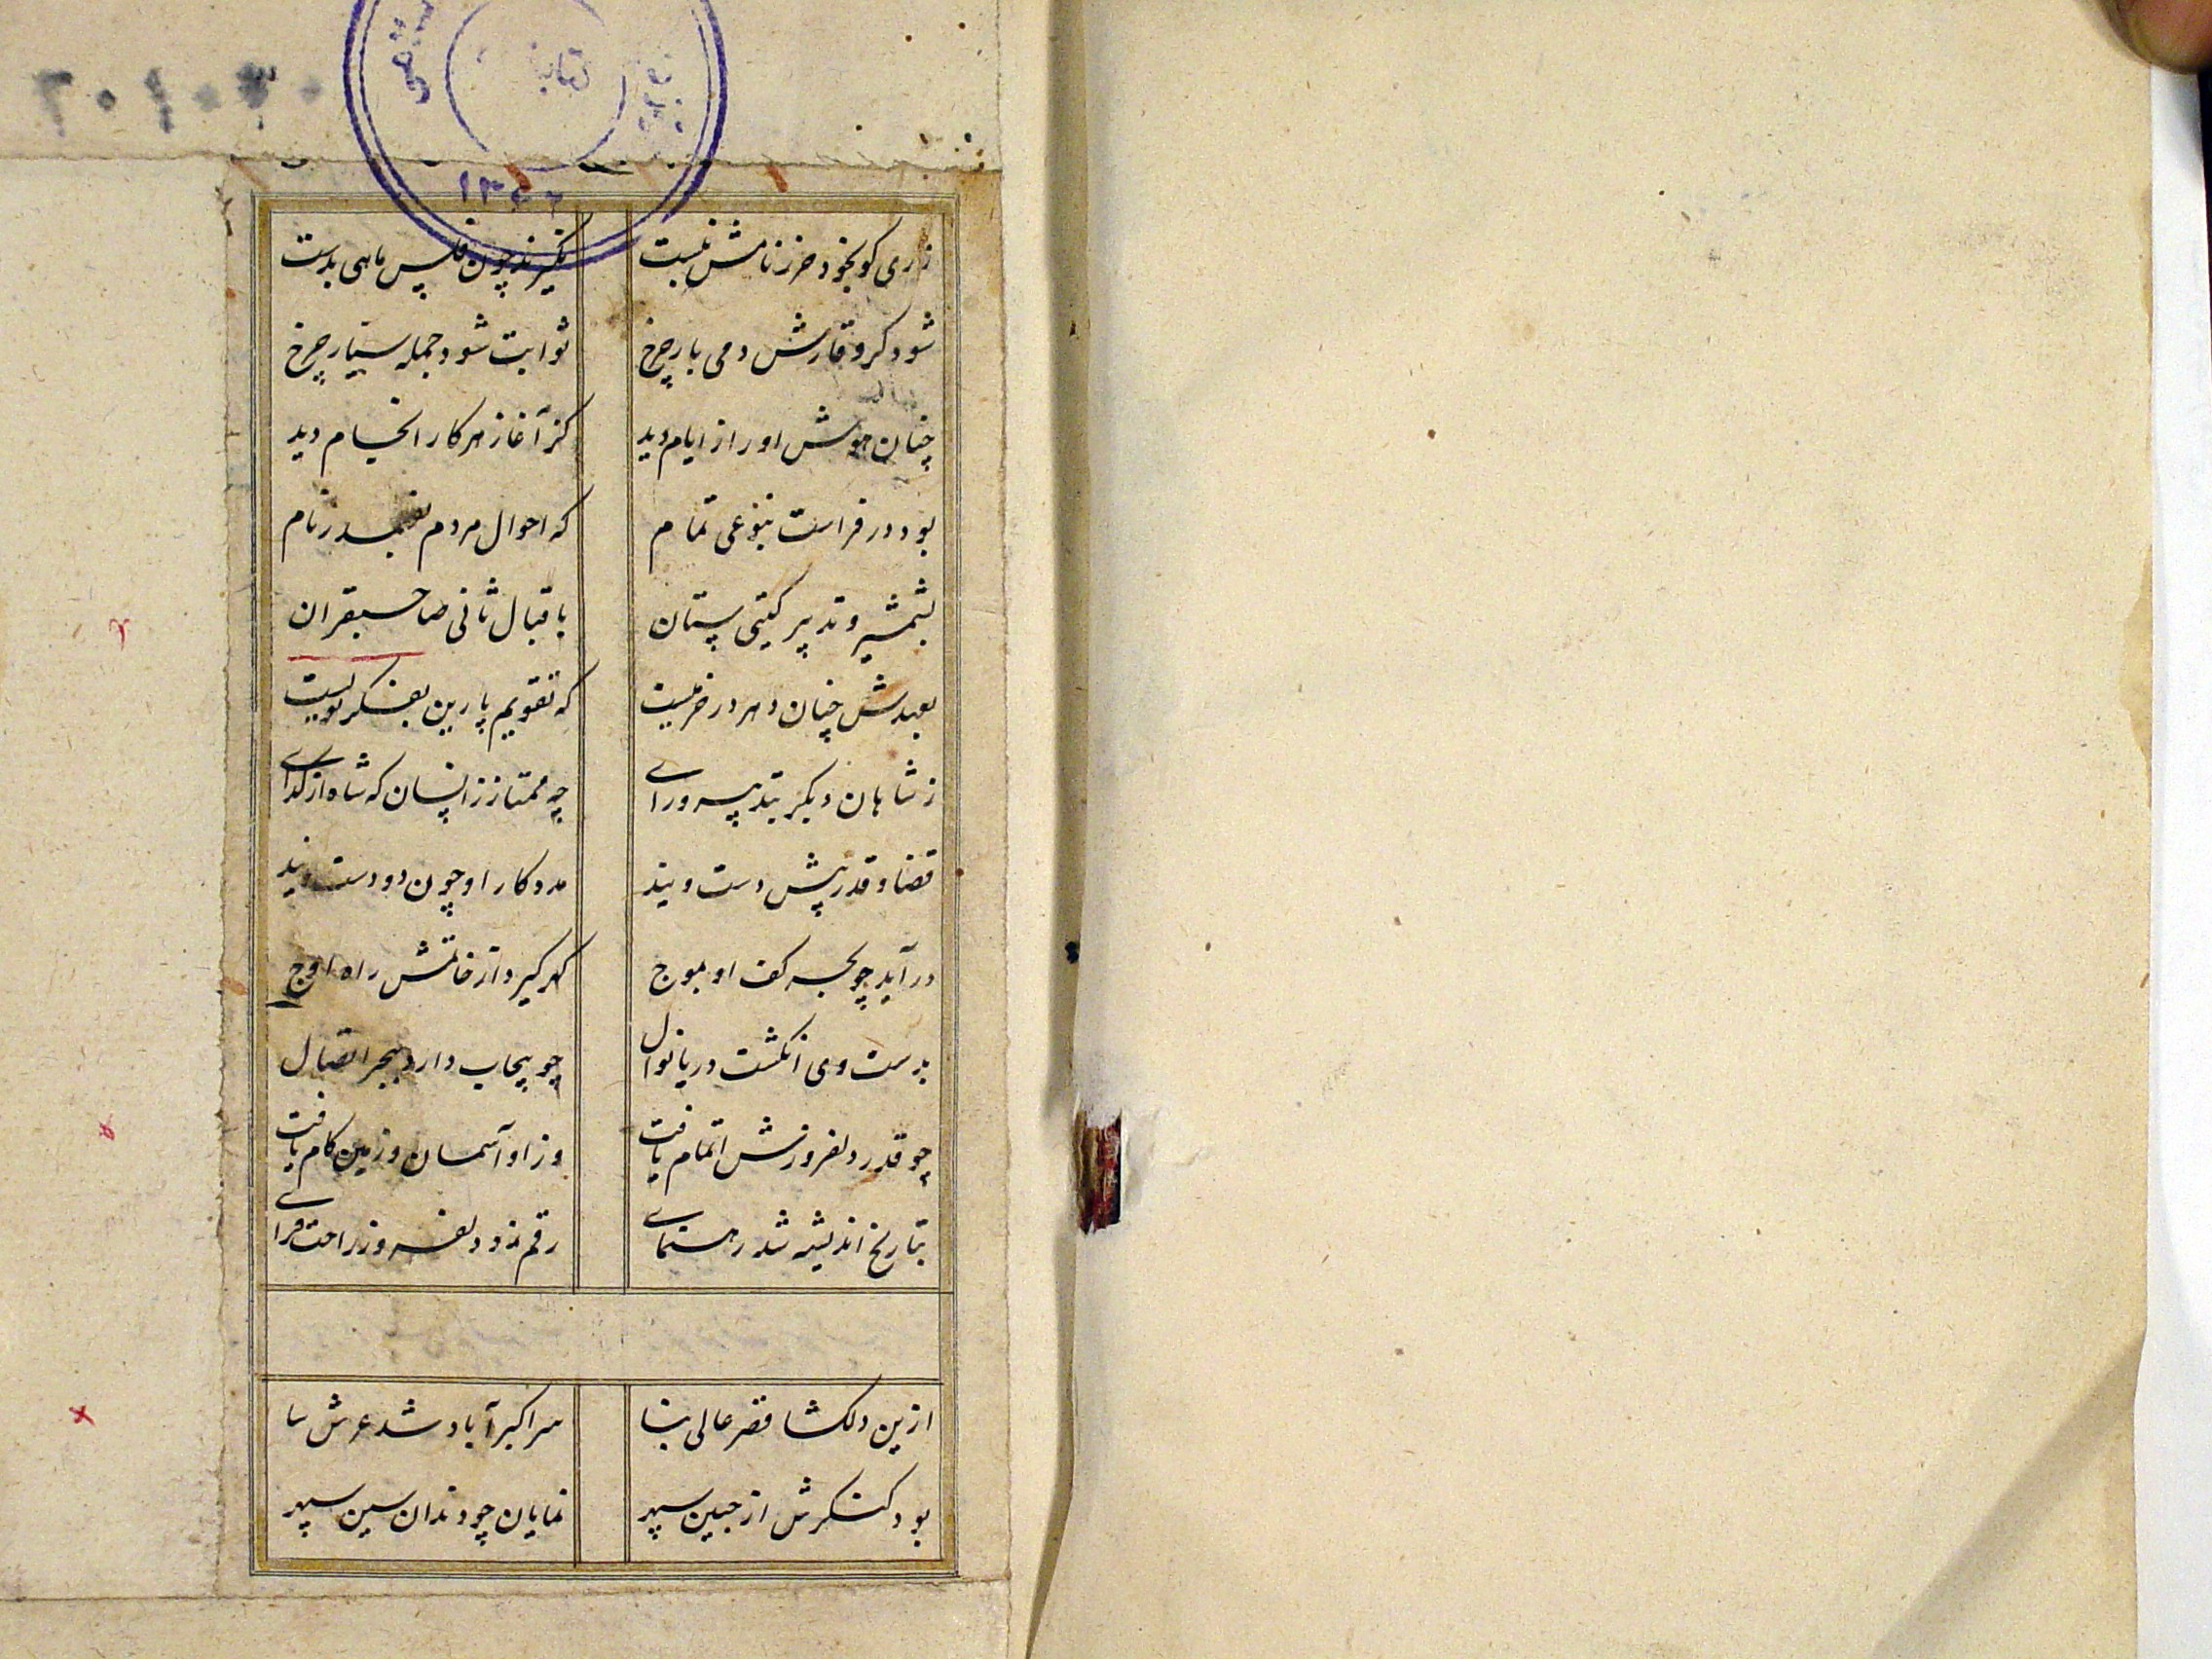 زری کو بخود حرز نامش نبست نگیرند چون فلس ماهی بدست
شود گر وقارش دمی یار چرخ ثوابت شود جمله سیار چرخ
چنان هوش او راز ایام دید کز آغاز هر کار انجام دید
بود در فراست بنوعی تمام که احوال مردم بفهمد ز نام
بشمشیر و تدبیر کیتی ستان باقبال ثانی صاحبقران
بعهدش چنان دهر در خرمیست که تقویم پارین بفکر نویست
ز شاهان دیکر بتدبیر و رای چه ممتاز زانسان که شاه از کدای
قضا و قدر پیش دست ویند مددکار او چون دو دست ویند
در آید چو بحر کف او بموج کهر کیرد از خاتمش راه اوج
بدست وی انکشت دریا نوال چو پیچاب دارد ببحر اتصال
چو قدر دلفروزش اتمام یافت وز او آسمان و زمین کام یافت
بتاریخ اندیشه شد رهنمای رقم زد دلفروز راحت فزای
ازین دلکشا قصر عالی بنا سر اکبرآباد شد عرش سا
بود کنکرش از جبین سپهر نمایان چو دندان سین سپهر